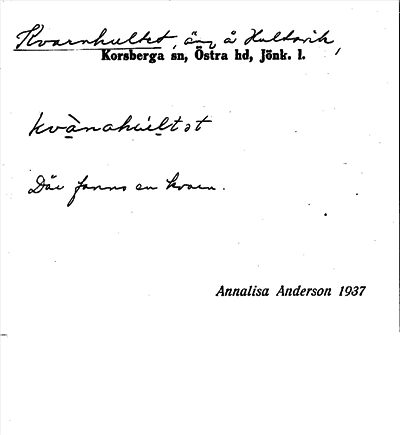 Kvarnhultet, äng å Hultsvik,
Korsberga sn, Östra hd, Jönk. l.
kvànahùltət
Där fanns en kvarn.
Annalisa Anderson 1937